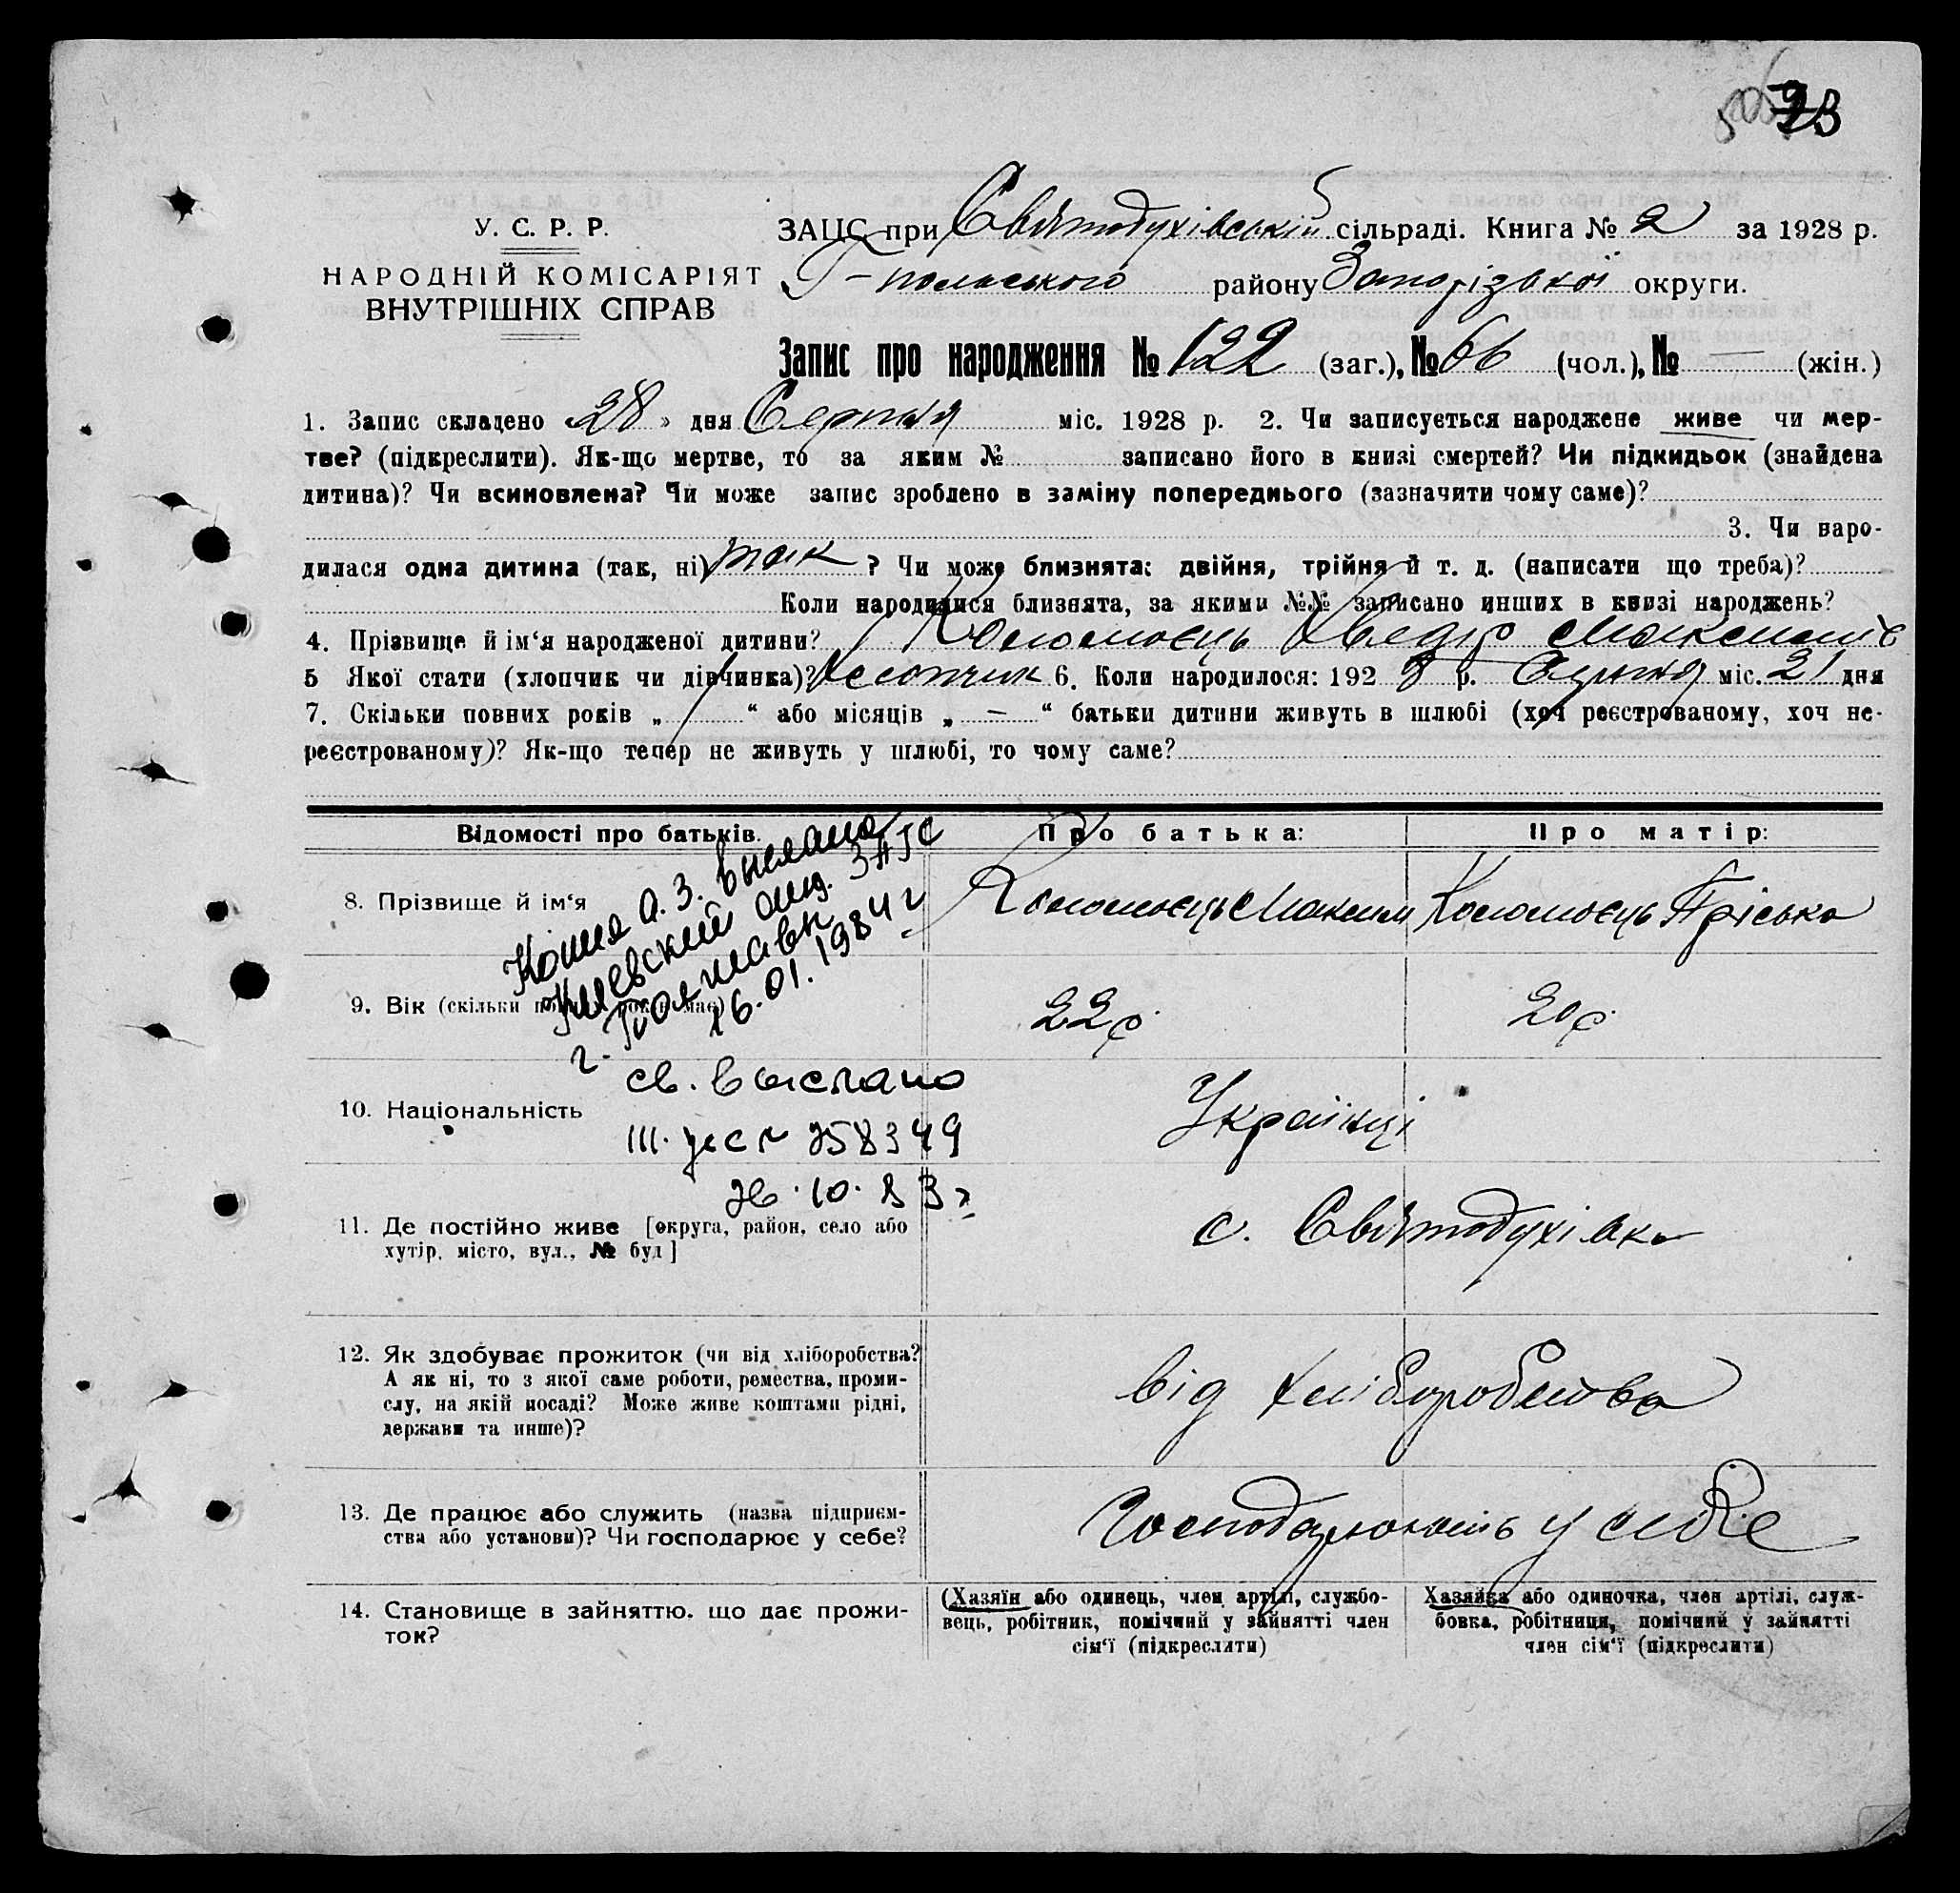 93
У. С. Р. Р.
НАРОДНІЙ КОМІСАРІЯТ
ВНУТРІШНІХ СПРАВ
ЗАЦС при Святодухівській сільраді. Книга № 2 за 1928 р.
Г-польського району Запорізької округи.
Запис про народження № 122 (заг.), № 66 (чол.), № — (жін.)
1. Запис складено „28 » дня Серпня міс. 1928 р. 2. Чи записується народжене живе чи мер-
тве? (підкреслити). Як-що мертве, то за яким № записано його в книзі смертей? Чи підкидьок (знайдена
дитина)? Чи всиновлена? Чи може запис зроблено в заміну попереднього (зазначити чому саме)?
3. Чи наро-
дилася одна дитина (так, ні) так ? Чи може близнята: двійня, трійня й т. д. (написати що треба)?
Коли народилися близнята, за якими №№ записано инших в книзі народжень?
4. Прізвище й ім‘я народженої дитини? Коломоєць Хведір Максимів
5 Якої стати (хлопчик чи дівчинка)? Хлопчик 6. Коли народилося: 192 8 р. Серпня міс. 21 дня
7. Скільки повних років „ 1 “ або місяців „ — “ батьки дитини живуть в шлюбі (хоч реєстрованому, хоч не-
реєстрованому)? Як-що тепер не живуть у шлюбі, то чому саме?
Відомості про батьків. Про батька: Про матір:
8. Прізвище й ім‘я Коломоєць Максим Коломоєць Пріська
Копия а.з. выслана
Киевский отд. ЗАГС
г. Полтавы
16.01.1984 г
9. Вік (скільки повних років має) 22 р. 20 р.
св. выслано
10. Національність Українці
III. ЖС № 258349
26.10.83 г
11. Де постійно живе [округа, район, село або
хутір, місто, вул., № буд] с. Святодухівка
12. Як здобуває прожиток (чи від хліборобства?
А як ні, то з якої саме роботи, ремества, проми-
слу, на якій посаді? Може живе коштами рідні,
держави та инше)? від хліборобства
13. Де працює або служить (назва підприєм-
ства або установи)? Чи господарює у себе? Господарюють у себе
14. Становище в зайняттю, що дає прожи-
ток?
(Хазяїн або одинець, член артілі, службо-
вець, робітник, помічний у зайнятті член
сім‘ї (підкреслити)
Хазяйка або одиночка, член артілі, служ-
бовка, робітниця, помічний у зайнятті
член сім‘ї (підкреслити)